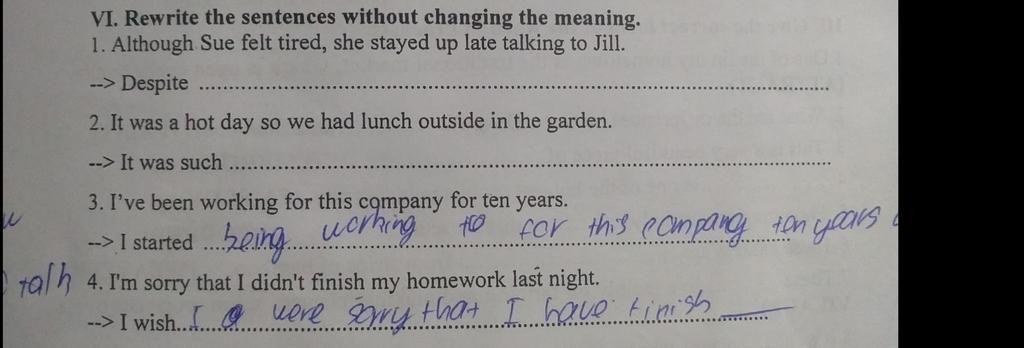 VI. Rewrite the sentences without changing the meaning.
1. Although Sue felt tired, she stayed up late talking to Jill.
--> Despite ..........
2. It was a hot day so we had lunch outside in the garden.
--> It was such ..........
3. I've been working for this company for ten years.
--> I started being working for this company ten years
talk
4. I'm sorry that I didn't finish my homework last night.
--> I wish.. I were sorry that I have finish